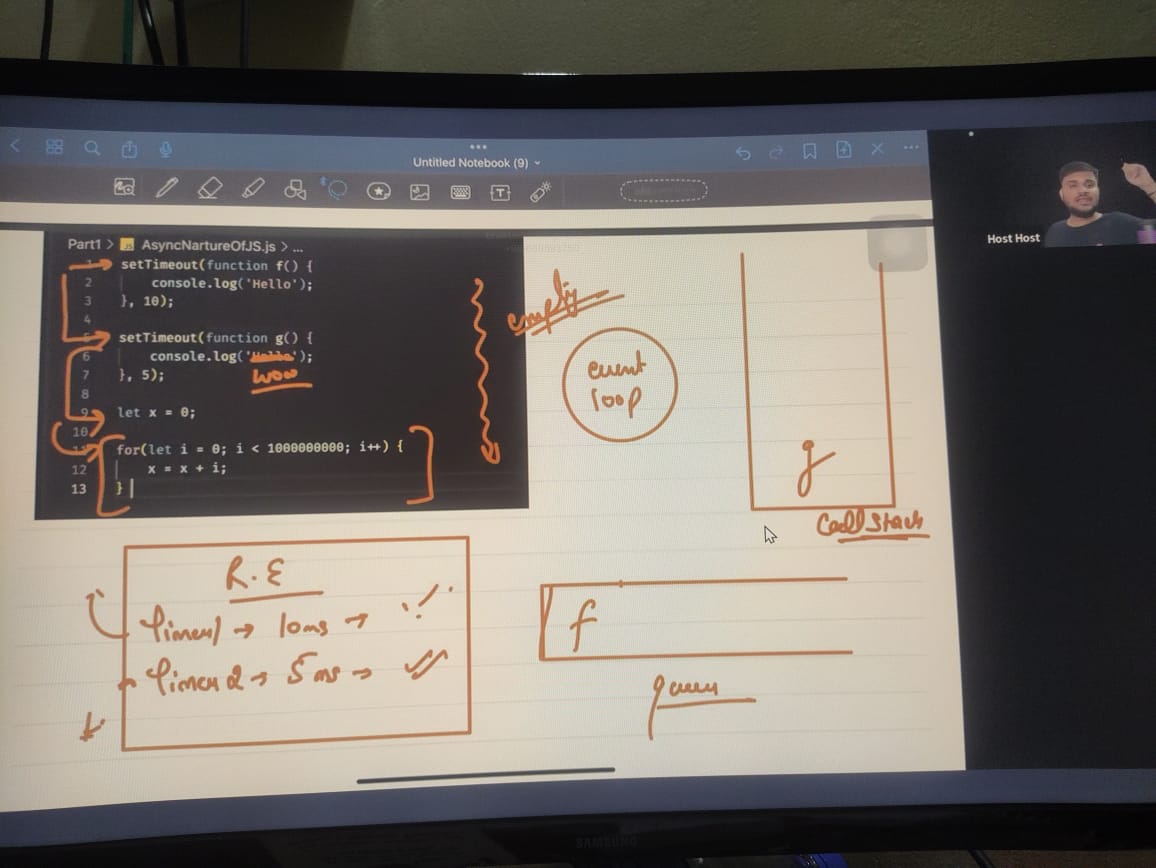 Untitled Notebook (9)
T
Part1 > JS AsyncNartureOfJS.js > ...
1 setTimeout(function f() {
2 console.log('Hello');
3 }, 10);
4
5 setTimeout(function g() {
6 console.log('Hello');
wow
7 }, 5);
8
9 let x = 0;
10
11 for(let i = 0; i < 1000000000; i++) {
12 x = x + i;
13 }
empty
event
loop
g
Call Stack
R.E
Timer1 → 10ms →
Timer 2 → 5 ms →
f
queue
Host Host
SAMSUNG